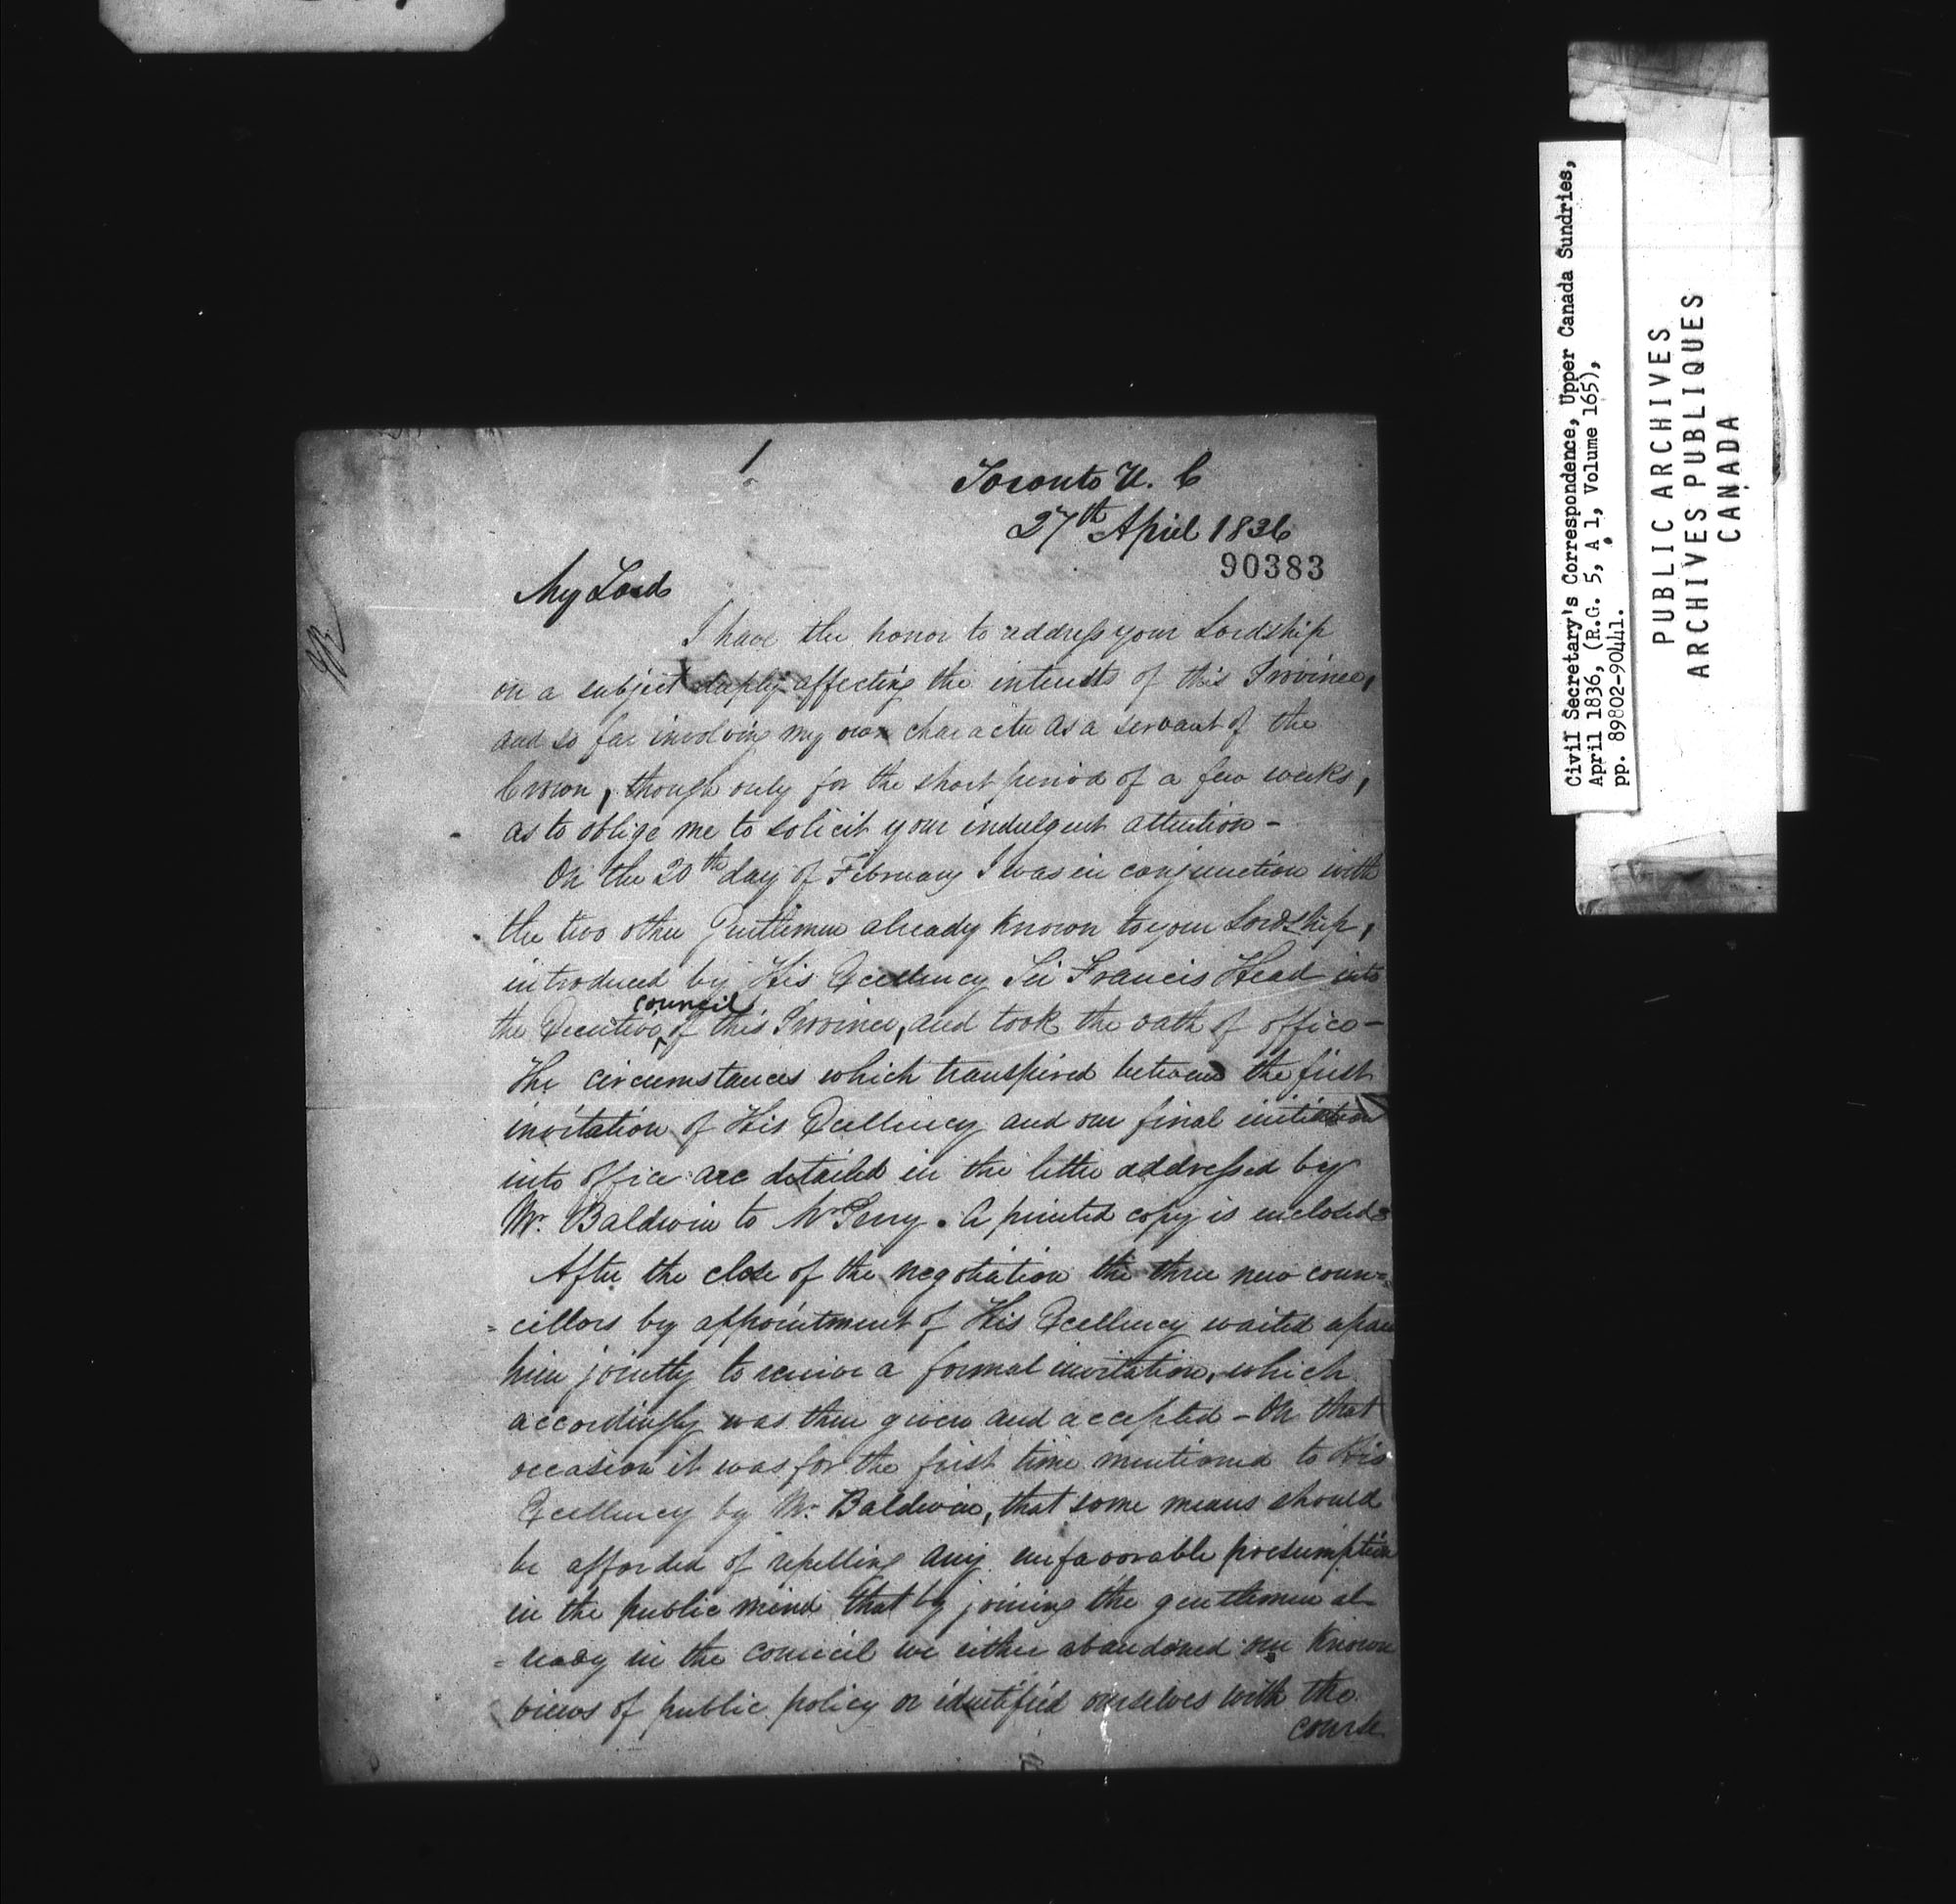 1
Toronto U. C
27th April 1836
90383
My Lord
I have the honor to address your Lordship
on a subject deeply affecting the interests of this Province,
and so far involving my own character as a servant of the
Crown, though only for the short period of a few weeks,
as to oblige me to solicit your indulgent attention -
On the 20th day of February I was in conjunction with
the two other Gentlemen already known to your Lordship,
introduced by His Excellency Sir Francis Head into
the Executive council of this Province, and took the oath of office -
The circumstances which transpired between the first
invitation of His Excellency and our final initiation
into office are detailed in the letter addressed by
Mr. Baldwin to Mr Perry. A printed copy is enclosed
After the close of the negotiation the three new coun=
=cillors by appointment of His Excellency waited upon
him jointly to receive a formal invitation, which
accordingly was then given and accepted - On that
occasion it was for the first time mentioned to His
Excellency by Mr. Baldwin, that some means should
be afforded of repelling any unfavorable presumption
in the public mind that by joining the gentlemen al-
=ready in the council we either abandoned our known
views of public policy or identified ourselves with the
course
Civil Secretary's Correspondence, Upper Canada Sundries,
April 1836, (R.G. 5, A 1, Volume 165),
pp. 89802-90441.
PUBLIC ARCHIVES
ARCHIVES PUBLIQUES
CANADA